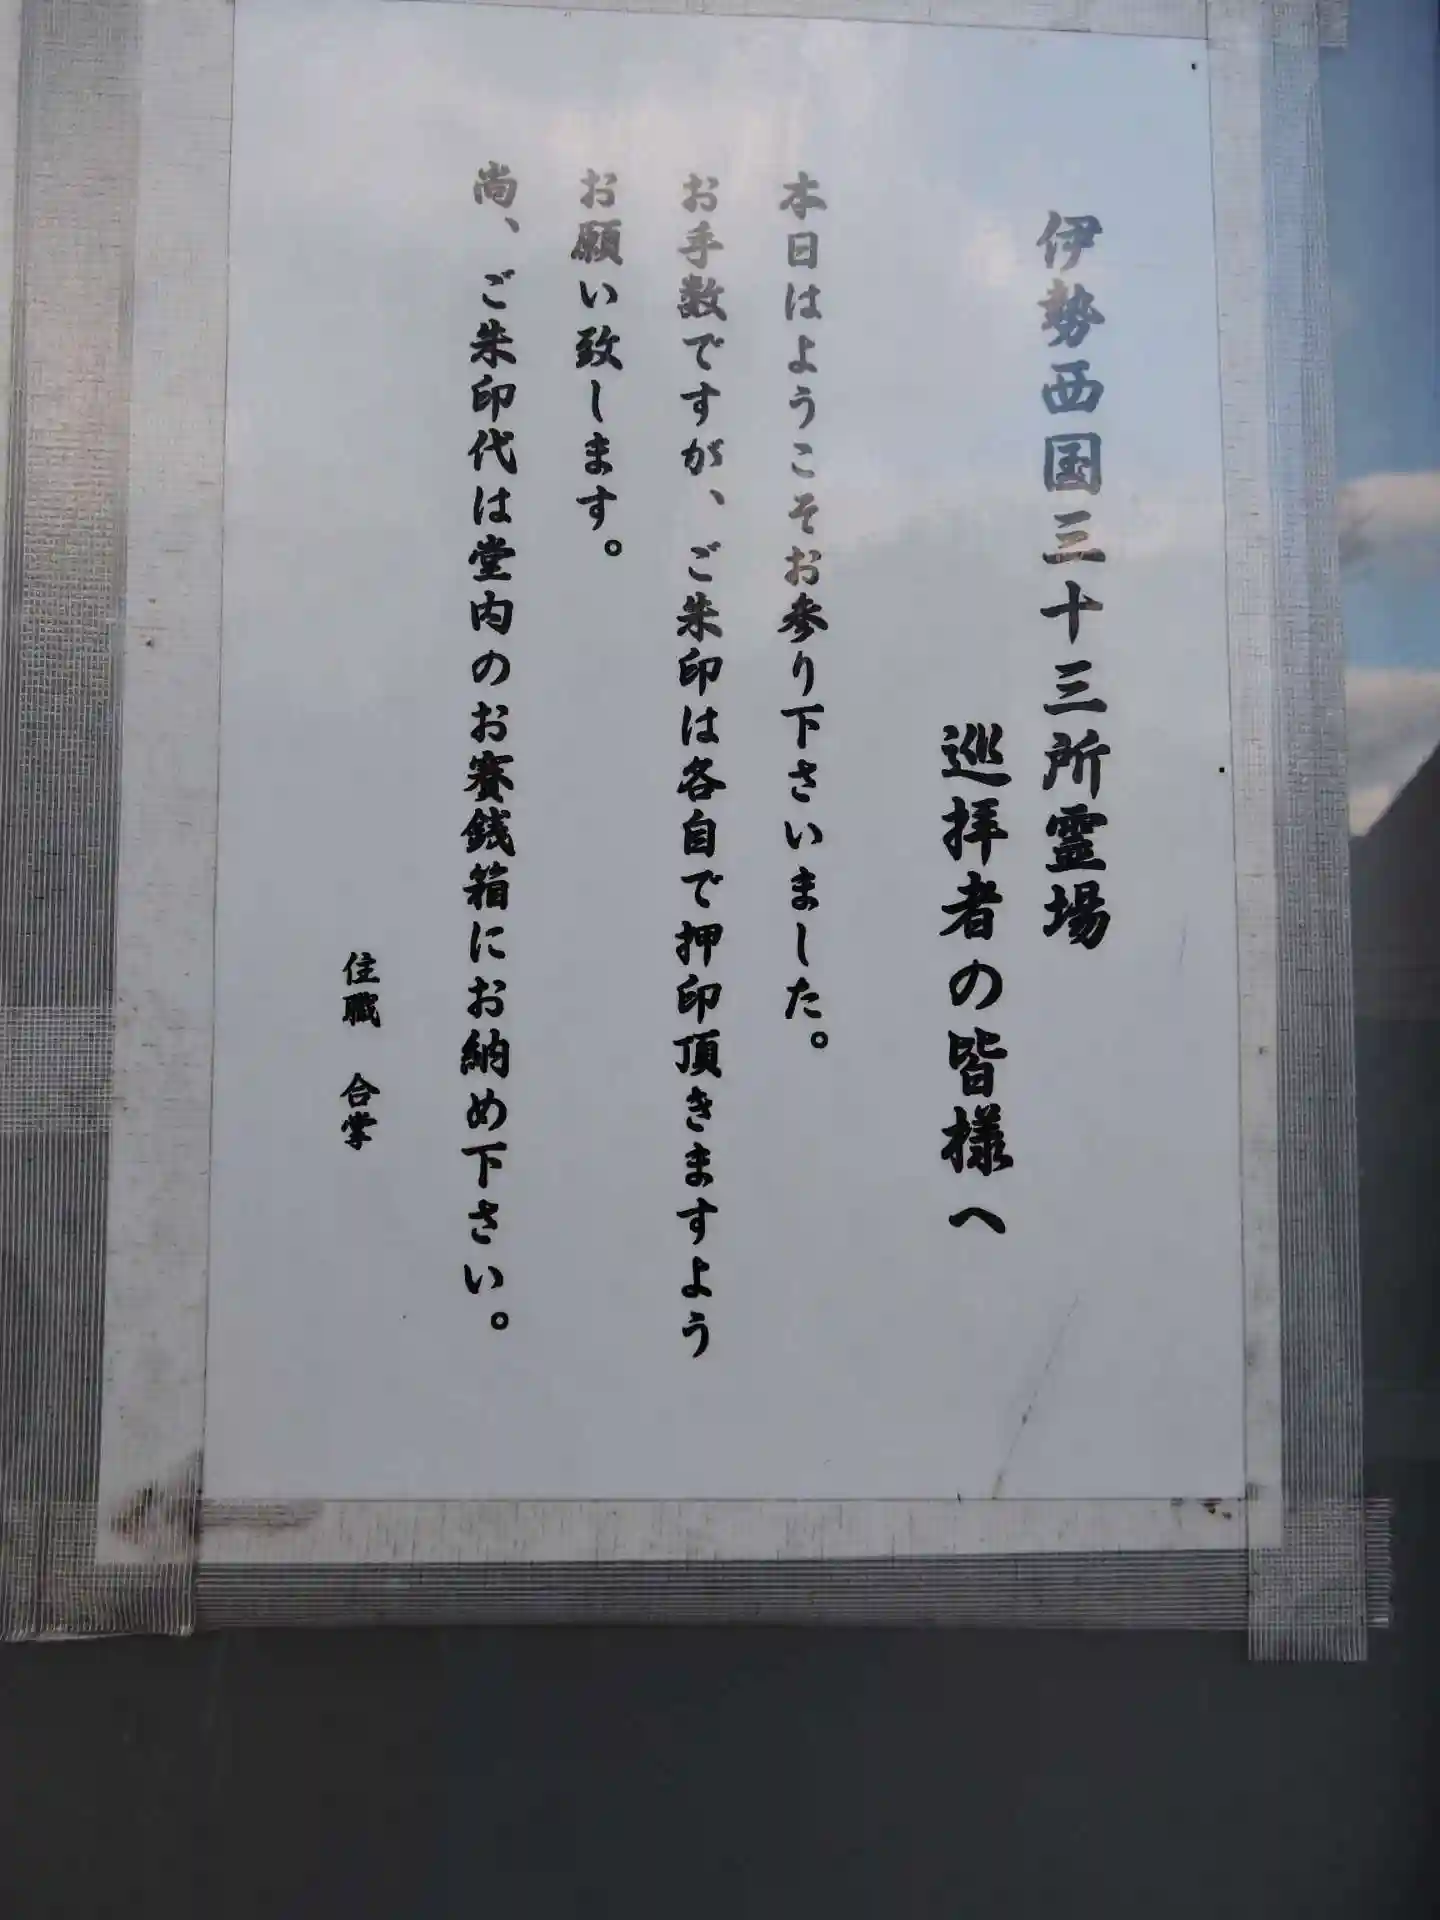 伊勢西国三十三所霊場
巡拝者の皆様へ
本日はようこそお参り下さいました。
お手数ですが、ご朱印は各自で押印頂きますよう
お願い致します。
尚、ご朱印代は堂内のお賽銭箱にお納め下さい。
住職　合掌